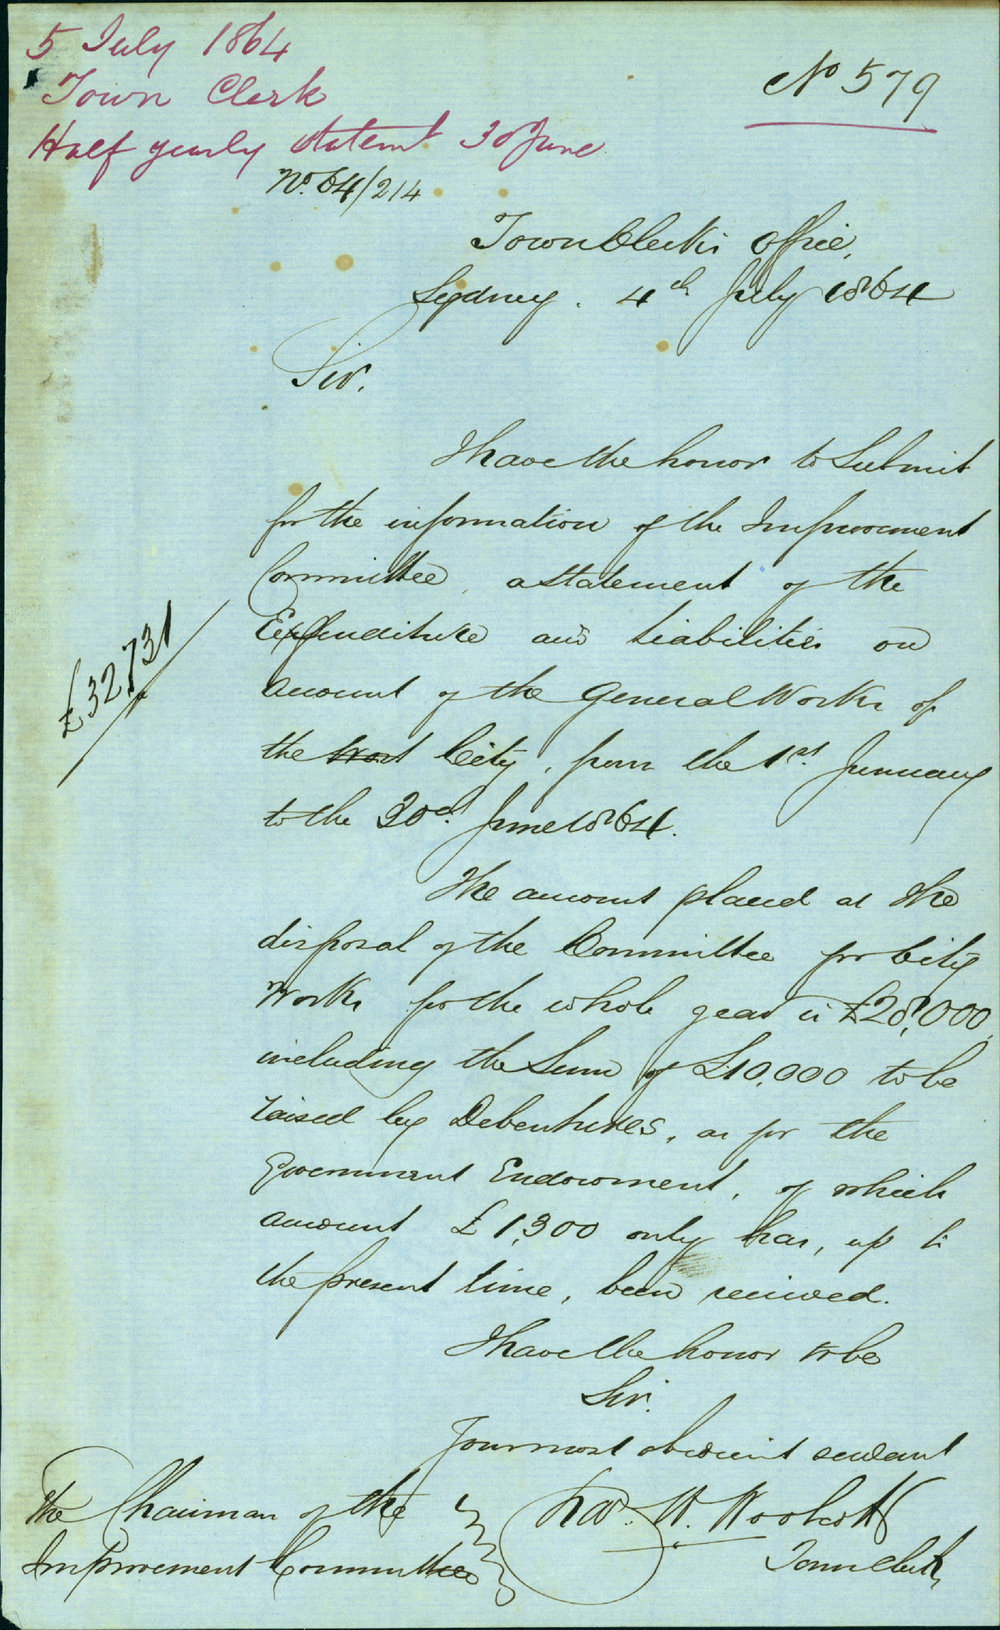 5 July 1864
Town Clerk
Half yearly statemt 30 June
No 579
No. 64/214
Town Clerk's Office,
Sydney. 4th July 1864
Sir.
I have the honor to Submit
for the information of the Improvement
Committee, a statement of the
Expenditure and Liabilities on
account of the General Works of
the City, from the 1st. January
to the 30th. June 1864.
£32,731
The amount placed at the
disposal of the Committee for City
Works for the whole year is £28,000,
including the Sum of £10,000 to be
raised by Debentures, as for the
Government Endowment, of which
amount £1,300 only has, up to
the present time, been received.
I have the honor to be
Sir.
Your most obedient servant
Chas. H. Woolcott
Town Clerk,
The Chairman of the
Improvement Committee